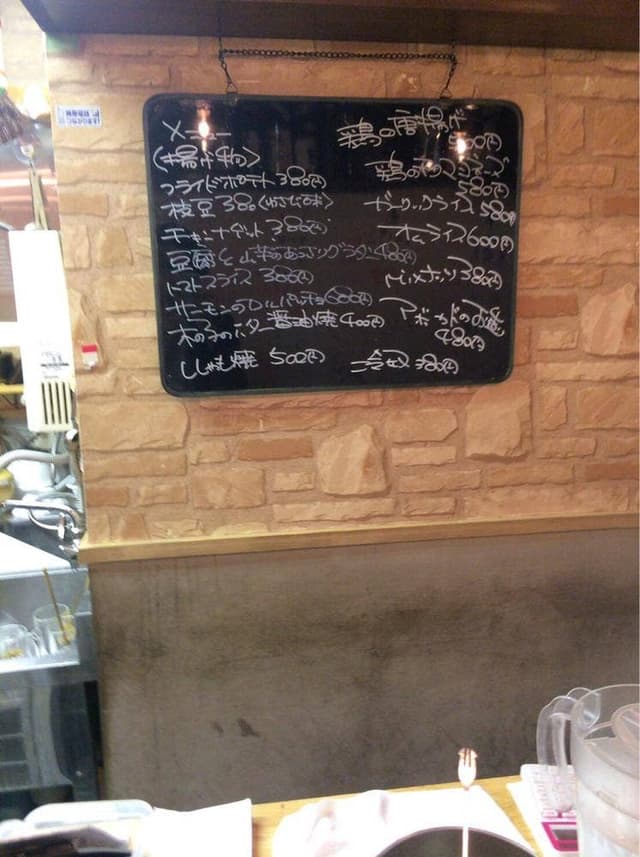 メニュー
(揚げ物)
フライドポテト 380円
枝豆 380
チキンナゲット 380円
豆腐と山芋の グラタン 480円
トマトスライス 380円
サーモンの 680円
木の子のバター醤油焼 400円
ししゃも焼 500円
鶏の唐揚げ
500円
鶏の チーズ
580円
ガーリックライス 580円
オムライス 600円
ミックスナッツ 380円
アボカドの
480円
冷奴 380円